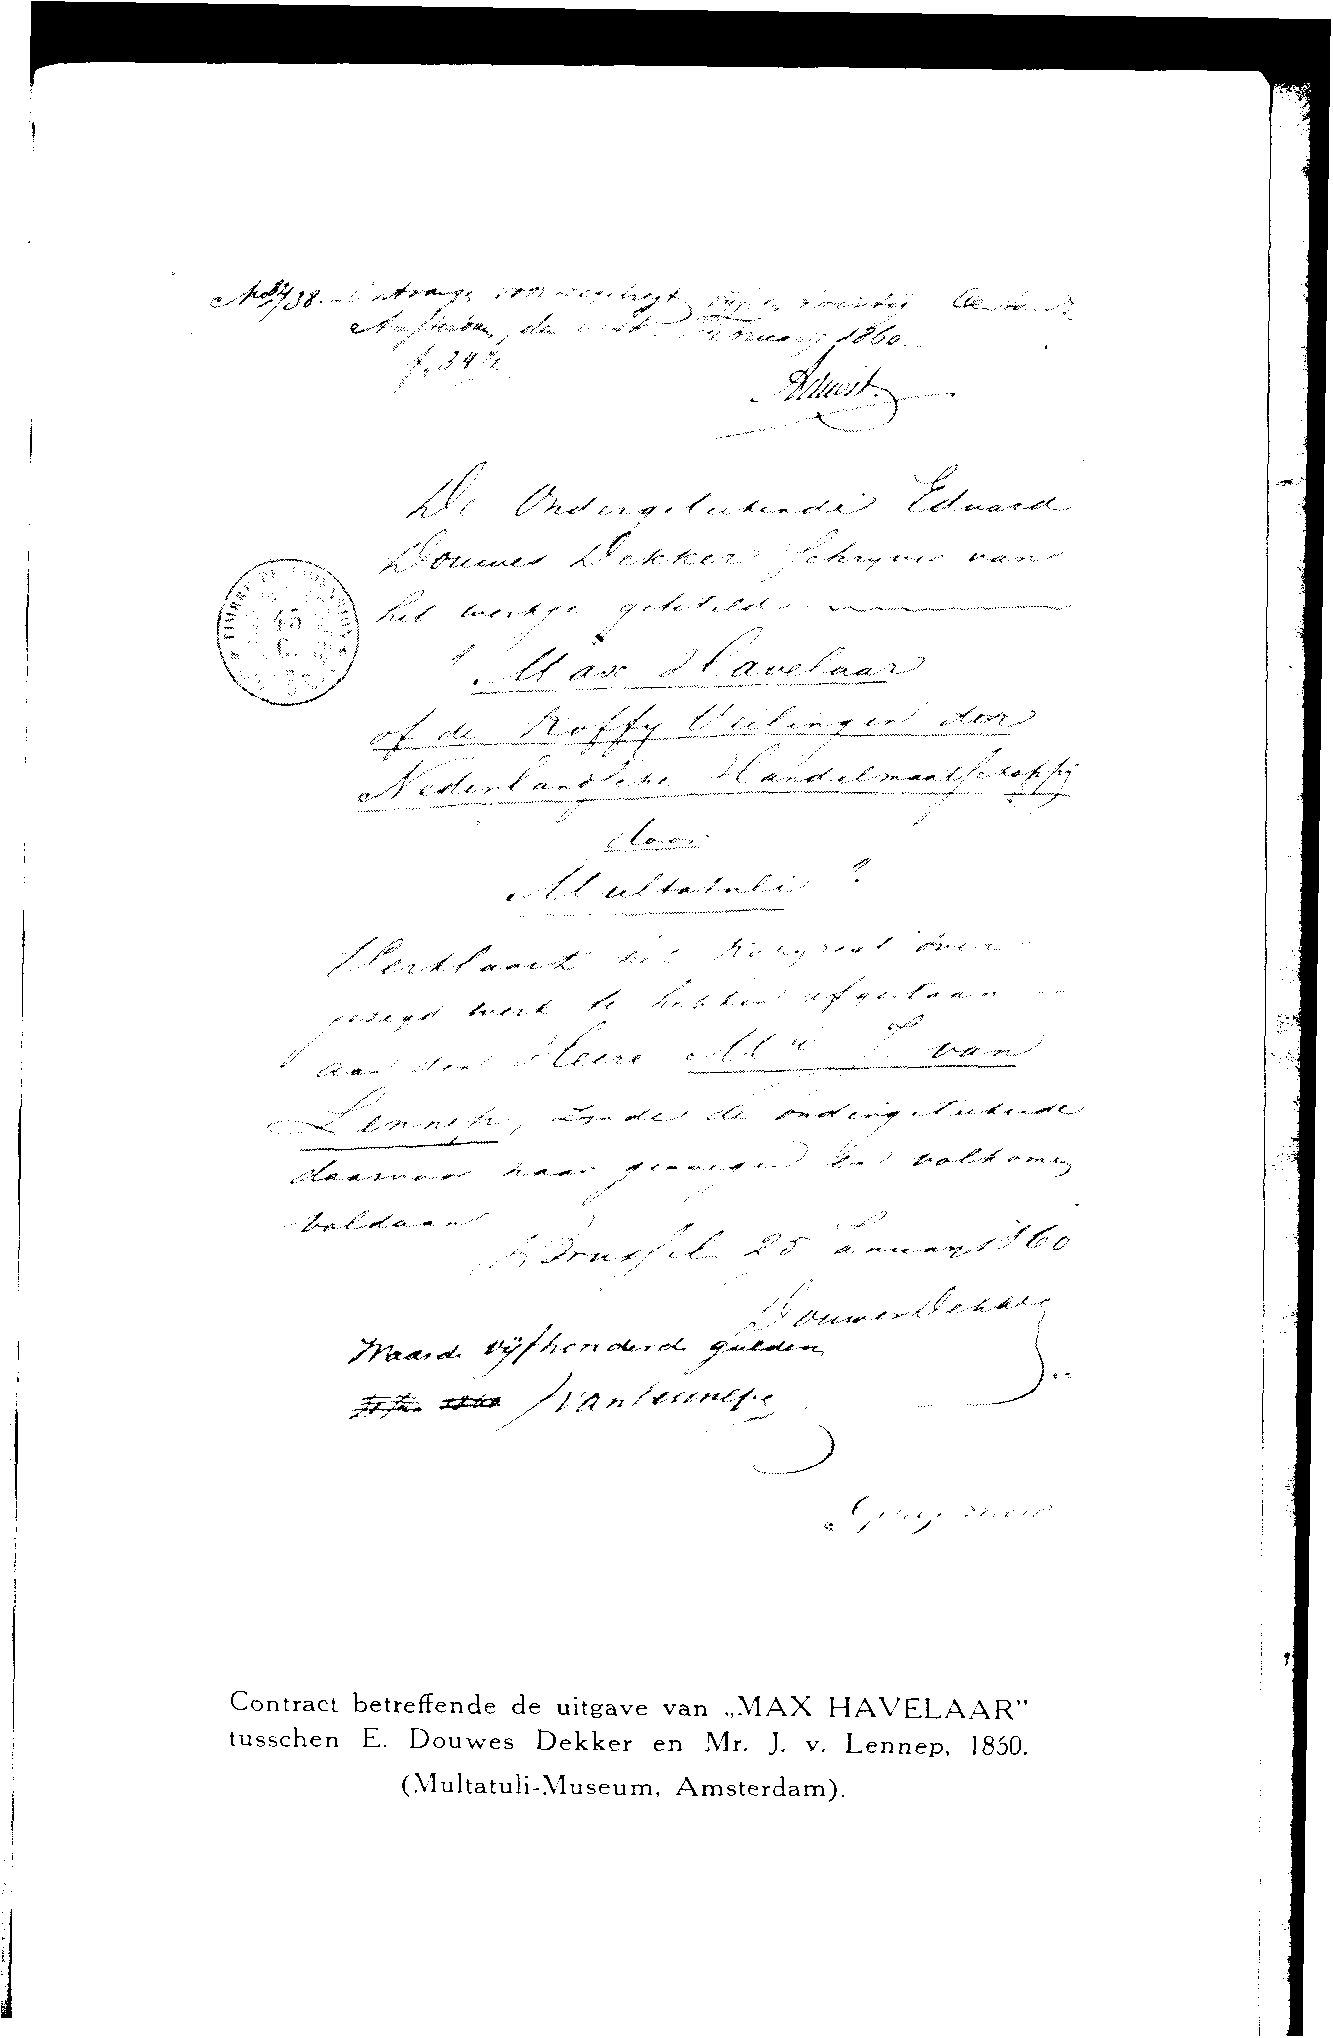 Amsterdam, den Februarij 1860.
De Ondergeteekende Eduard
Douwes Dekker Schryver van
het werkje getiteld
"Max Havelaar
of de Koffy Veilingen der
Nederlandsche Handelmaatschappij
door
Multatuli"
Verklaart het Kopyregt over
gezegd werk te hebben afgestaan
aan den Heere Mr J. van
Lennep, zynde de ondergeteekende
daarvoor naar genoegen en volkomen
voldaan
Brussel 25 Januarij 1860
Douwes Dekker
Waarde vijfhonderd gulden
JvanLennep
45
C.
Contract betreffende de uitgave van „MAX HAVELAAR"
tusschen E. Douwes Dekker en Mr. J. v. Lennep, 1860.
(Multatuli-Museum, Amsterdam).